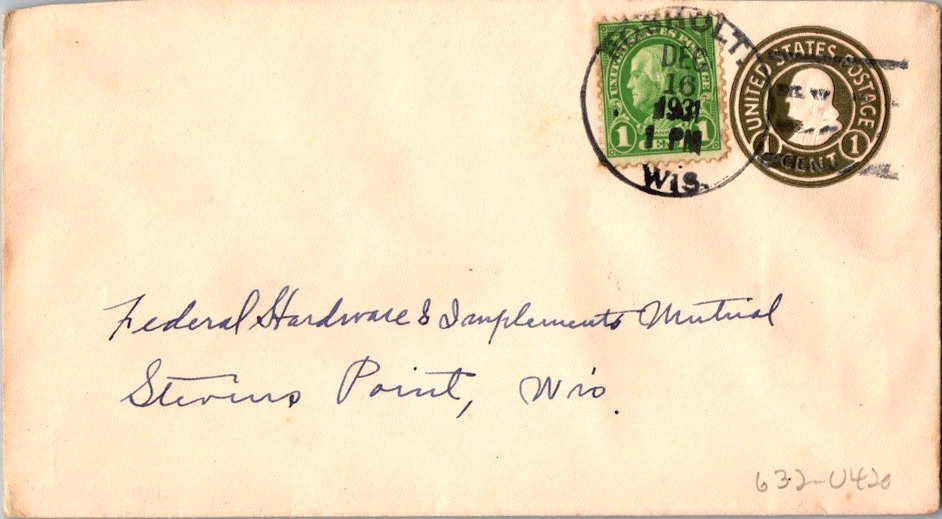 ROSHOLT.
DEC
16
1931
1 PM
WIS.
UNITED STATES POSTAGE
1 CENT 1
UNITED STATES POSTAGE
1 CENT 1
Federal Hardware & Implements Mutual
Stevens Point, Wis.
632-U420